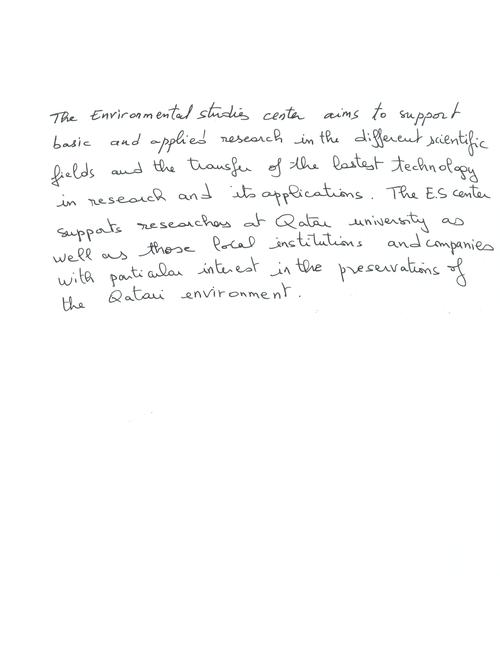 The Environmental studies center aims to support
basic and applied research in the different scientific
fields and the transfer of the lastest technology
in research and its applications. The E.S center
supports researchers at Qatar university as
well as those local institutions and companies
with particular interest in the preservations of
the Qatari environment.